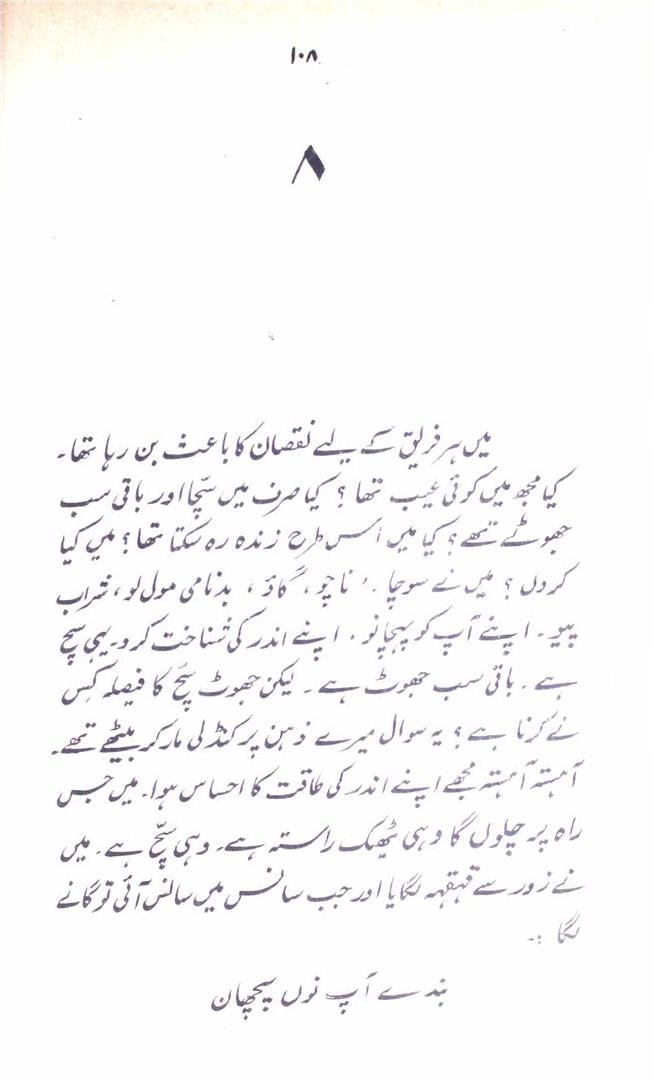 ۱۰۸
۸
میں ہر فریق کے لیے نقصان کا باعث بن رہا تھا۔
کیا مجھ میں کوئی عیب تھا؟ کیا صرف میں سچّا اور باقی سب
جھوٹے تھے؟ کیا میں اس طرح زندہ رہ سکتا تھا؟ میں کیا
کردں؟ میں نے سوچا۔ ' ناچو، گاؤ، بدنامی مول لو، شراب
پیو۔ اپنے آپ کو پہچانو۔ اپنے اندر کی شناخت کرد۔ یہی سچ
ہے۔ باقی سب جھوٹ ہے۔ لیکن جھوٹ سچّ کا فیصلہ کس
نے کرنا ہے؟ یہ سوال میرے ذہن پر کنڈلی مار کر بیٹھے تھے۔
آہستہ آہستہ مجھے اپنے اندر کی طاقت کا احساس ہوا۔ میں جس
راہ پر چلوں گا وہی ٹھیک راستہ ہے۔ وہی سچّ ہے۔ میں
نے زور سے قہقہہ لگایا اور جب سانس میں سانس آئی تو گانے
لگا :۔
بندے آپ نوں پہچان